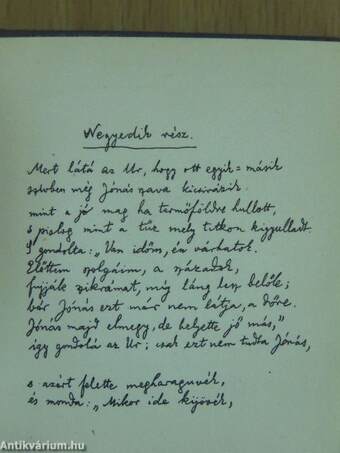 Negyedik rész.
Mert látá az Ur, hogy ott egyik-másik
szivben még Jónás szava kicsirázik
mint a jó mag ha termőföldre hullott,
s pislog mint a tűz mely titkon kigyulladt.
S gondolta: „Van időm, én várhatok.
Előttem szolgáim, a századok,
fujják szikrámat, míg láng lesz belőle;
bár Jónás ezt már nem látja, a dőre.
Jónás majd elmegy, de helyette jő más,”
így gondolá az Ur; csak ezt nem tudta Jónás,
s azért felette megharaguvék,
és monda: „Mikor ide kijövék,
Antikvárium.hu
antikvarium.hu